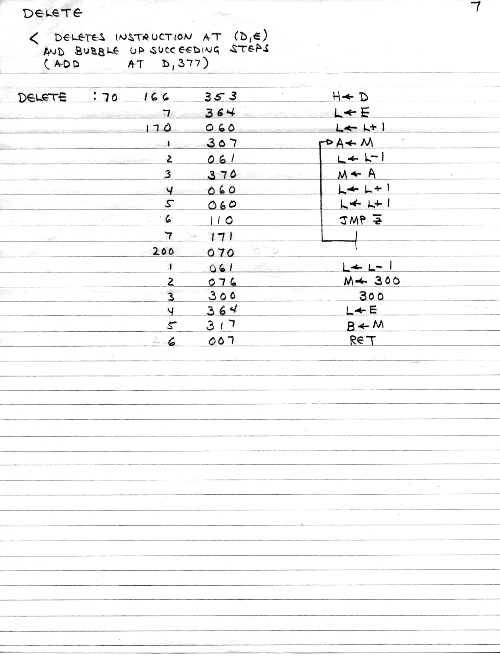 7
DELETE
< DELETES INSTRUCTION AT (D,E)
AND BUBBLE UP SUCCEEDING STEPS
(ADD AT D,377)
DELETE :70 166 353 H←D
7 364 L←E
170 060 L←L+1
1 307 A←M
2 061 L←L-1
3 370 M←A
4 060 L←L+1
5 060 L←L+1
6 110 JMP z̅
7 171
200 070
1 061 L←L-1
2 076 M←300
3 300 300
4 364 L←E
5 317 B←M
6 007 RET